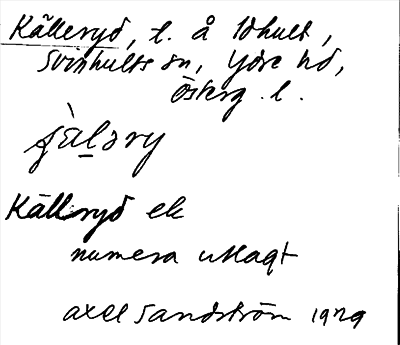 Källeryd, t. å Idhult,
Svinhults sn, Ydre hd,
Österg. l.
Källeryd ek
numera utlagt
Axel Sandström 1929